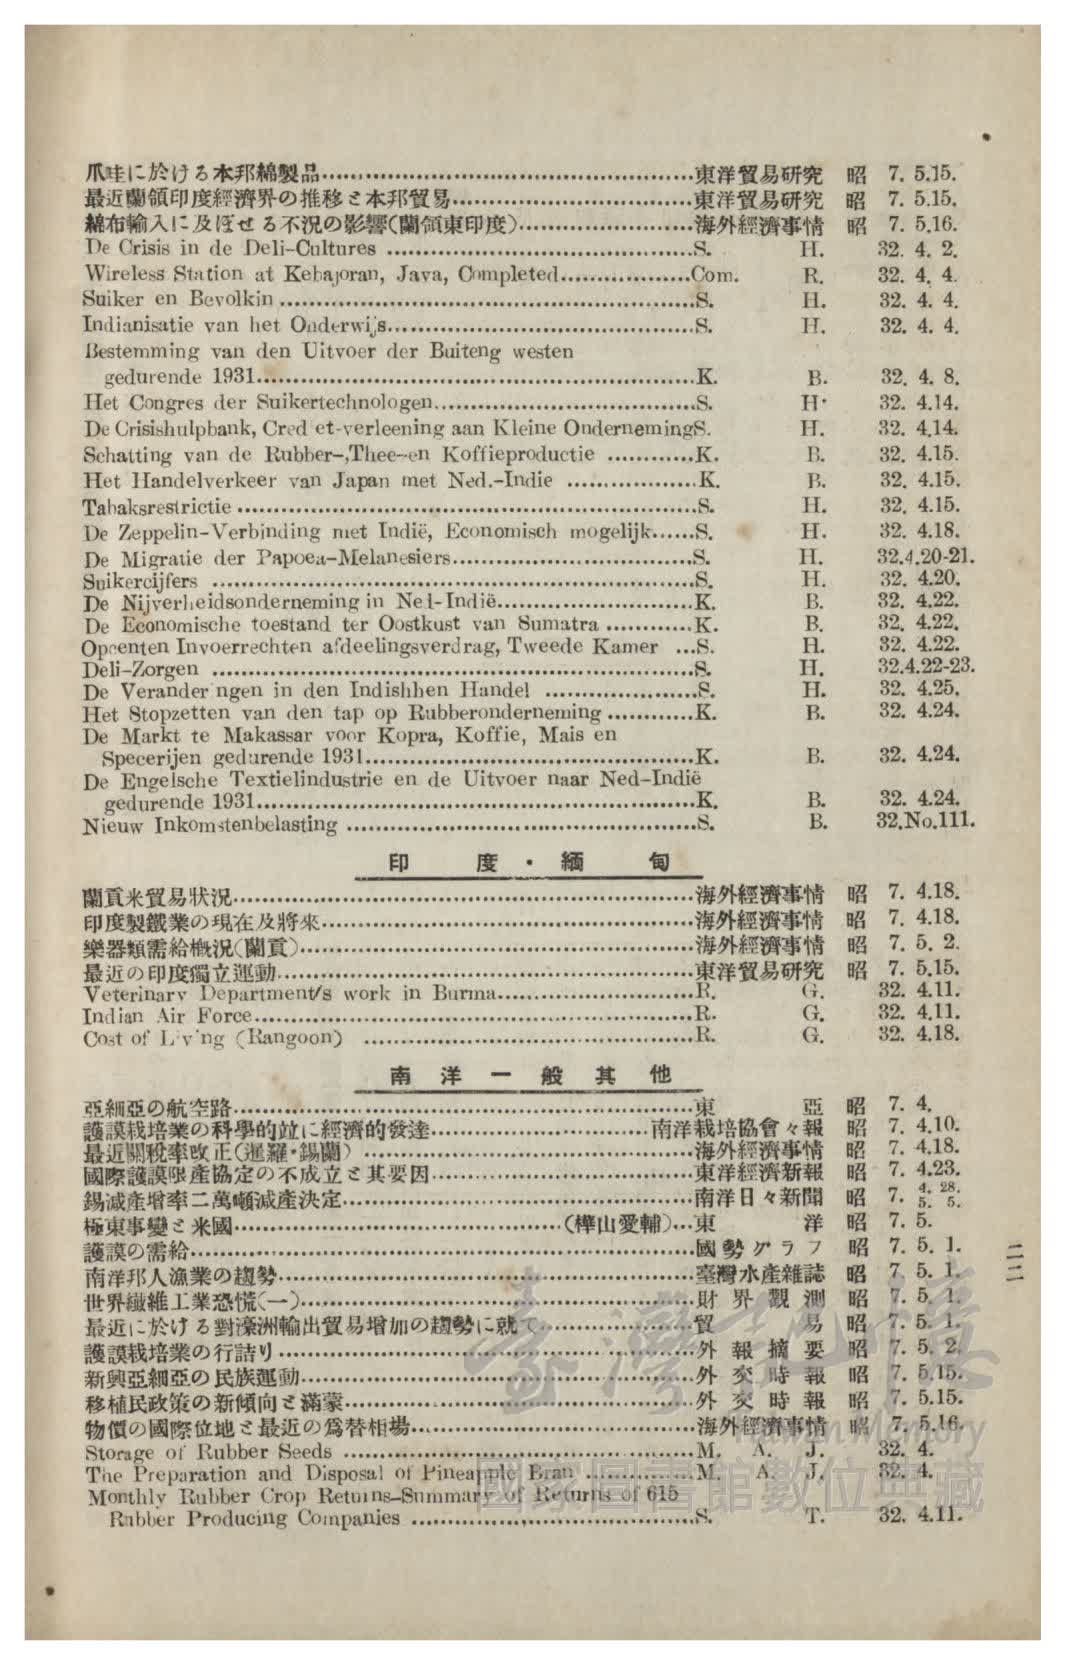 爪哇に於ける本邦綿製品……東洋貿易研究 昭 7. 5.15.
最近蘭領印度經濟界の推移と本邦貿易……東洋貿易研究 昭 7. 5.15.
綿布輸入に及ぼせる不況の影響(蘭領東印度)……海外經濟事情 昭 7. 5.16.
De Crisis in de Deli-Cultures ……S. H. 32. 4. 2.
Wireless Station at Kebajoran, Java, Completed……Com. R. 32. 4. 4.
Suiker en Bevolkin ……S. H. 32. 4. 4.
Indianisatie van het Onderwijs……S. H. 32. 4. 4.
Bestemming van den Uitvoer der Buiteng westen
gedurende 1931……K. B. 32. 4. 8.
Het Congres der Suikertechnologen……S. H. 32. 4.14.
De Crisishulpbank, Cred et-verleening aan Kleine OndernemingS. H. 32. 4.14.
Schatting van de Rubber-,Thee-en Koffieproductie ……K. B. 32. 4.15.
Het Handelverkeer van Japan met Ned.-Indie ……K. B. 32. 4.15.
Tabaksrestrictie ……S. H. 32. 4.15.
De Zeppelin-Verbinding met Indië, Economisch mogelijk……S. H. 32. 4.18.
De Migratie der Papoea-Melanesiers……S. H. 32.4.20-21.
Suikercijfers ……S. H. 32. 4.20.
De Nijverheidsonderneming in Ned-Indië……K. B. 32. 4.22.
De Economische toestand ter Oostkust van Sumatra ……K. B. 32. 4.22.
Opcenten Invoerrechten afdeelingsverdrag, Tweede Kamer …S. H. 32. 4.22.
Deli-Zorgen ……S. H. 32.4.22-23.
De Verander ngen in den Indishhen Handel ……S. H. 32. 4.25.
Het Stopzetten van den tap op Rubberonderneming……K. B. 32. 4.24.
De Markt te Makassar voor Kopra, Koffie, Mais en
Specerijen gedurende 1931……K. B. 32. 4.24.
De Engelsche Textielindustrie en de Uitvoer naar Ned-Indië
gedurende 1931……K. B. 32. 4.24.
Nieuw Inkomstenbelasting ……S. B. 32.No.111.
印度・緬甸
蘭貢米貿易狀況……海外經濟事情 昭 7. 4.18.
印度製鐵業の現在及將來……海外經濟事情 昭 7. 4.18.
樂器類需給槪況(蘭貢)……海外經濟事情 昭 7. 5. 2.
最近の印度獨立運動……東洋貿易研究 昭 7. 5.15.
Veterinary Department's work in Burma……R. G. 32. 4.11.
Indian Air Force……R. G. 32. 4.11.
Cost of L v ng (Rangoon) ……R. G. 32. 4.18.
南洋一般其他
亞細亞の航空路……東亞 昭 7. 4.
護謨栽培業の科學的竝に經濟的發達……南洋栽培協會々報 昭 7. 4.10.
最近關稅率改正(暹羅・錫蘭) ……海外經濟事情 昭 7. 4.18.
國際護謨限產協定の不成立と其要因……東洋經濟新報 昭 7. 4.23.
錫減產增率二萬噸減產決定……南洋日々新聞 昭 7. 4. 28. 5. 5.
極東事變と米國……(樺山愛輔)…東洋 昭 7. 5.
護謨の需給……國勢グラフ 昭 7. 5. 1.
南洋邦人漁業の趨勢……臺灣水產雜誌 昭 7. 5. 1.
世界纖維工業恐慌(一)……財界觀測 昭 7. 5. 1.
最近に於ける對濠洲輸出貿易增加の趨勢に就て……貿易 昭 7. 5. 1.
護謨栽培業の行詰り……外報摘要 昭 7. 5. 2.
新興亞細亞の民族運動……外交時報 昭 7. 5.15.
移植民政策の新傾向と滿蒙……外交時報 昭 7. 5.15.
物價の國際位地と最近の爲替相場……海外經濟事情 昭 7. 5.16.
Storage of Rubber Seeds ……M. A. J. 32. 4.
The Preparation and Disposal of Pineapple Bran ……M. A. J. 32. 4.
Monthly Rubber Crop Returns-Summary of Returns of 615
Rubber Producing Companies ……S. T. 32. 4.11.
二二
臺灣記憶
Taiwan Memory
國家圖書館數位典藏